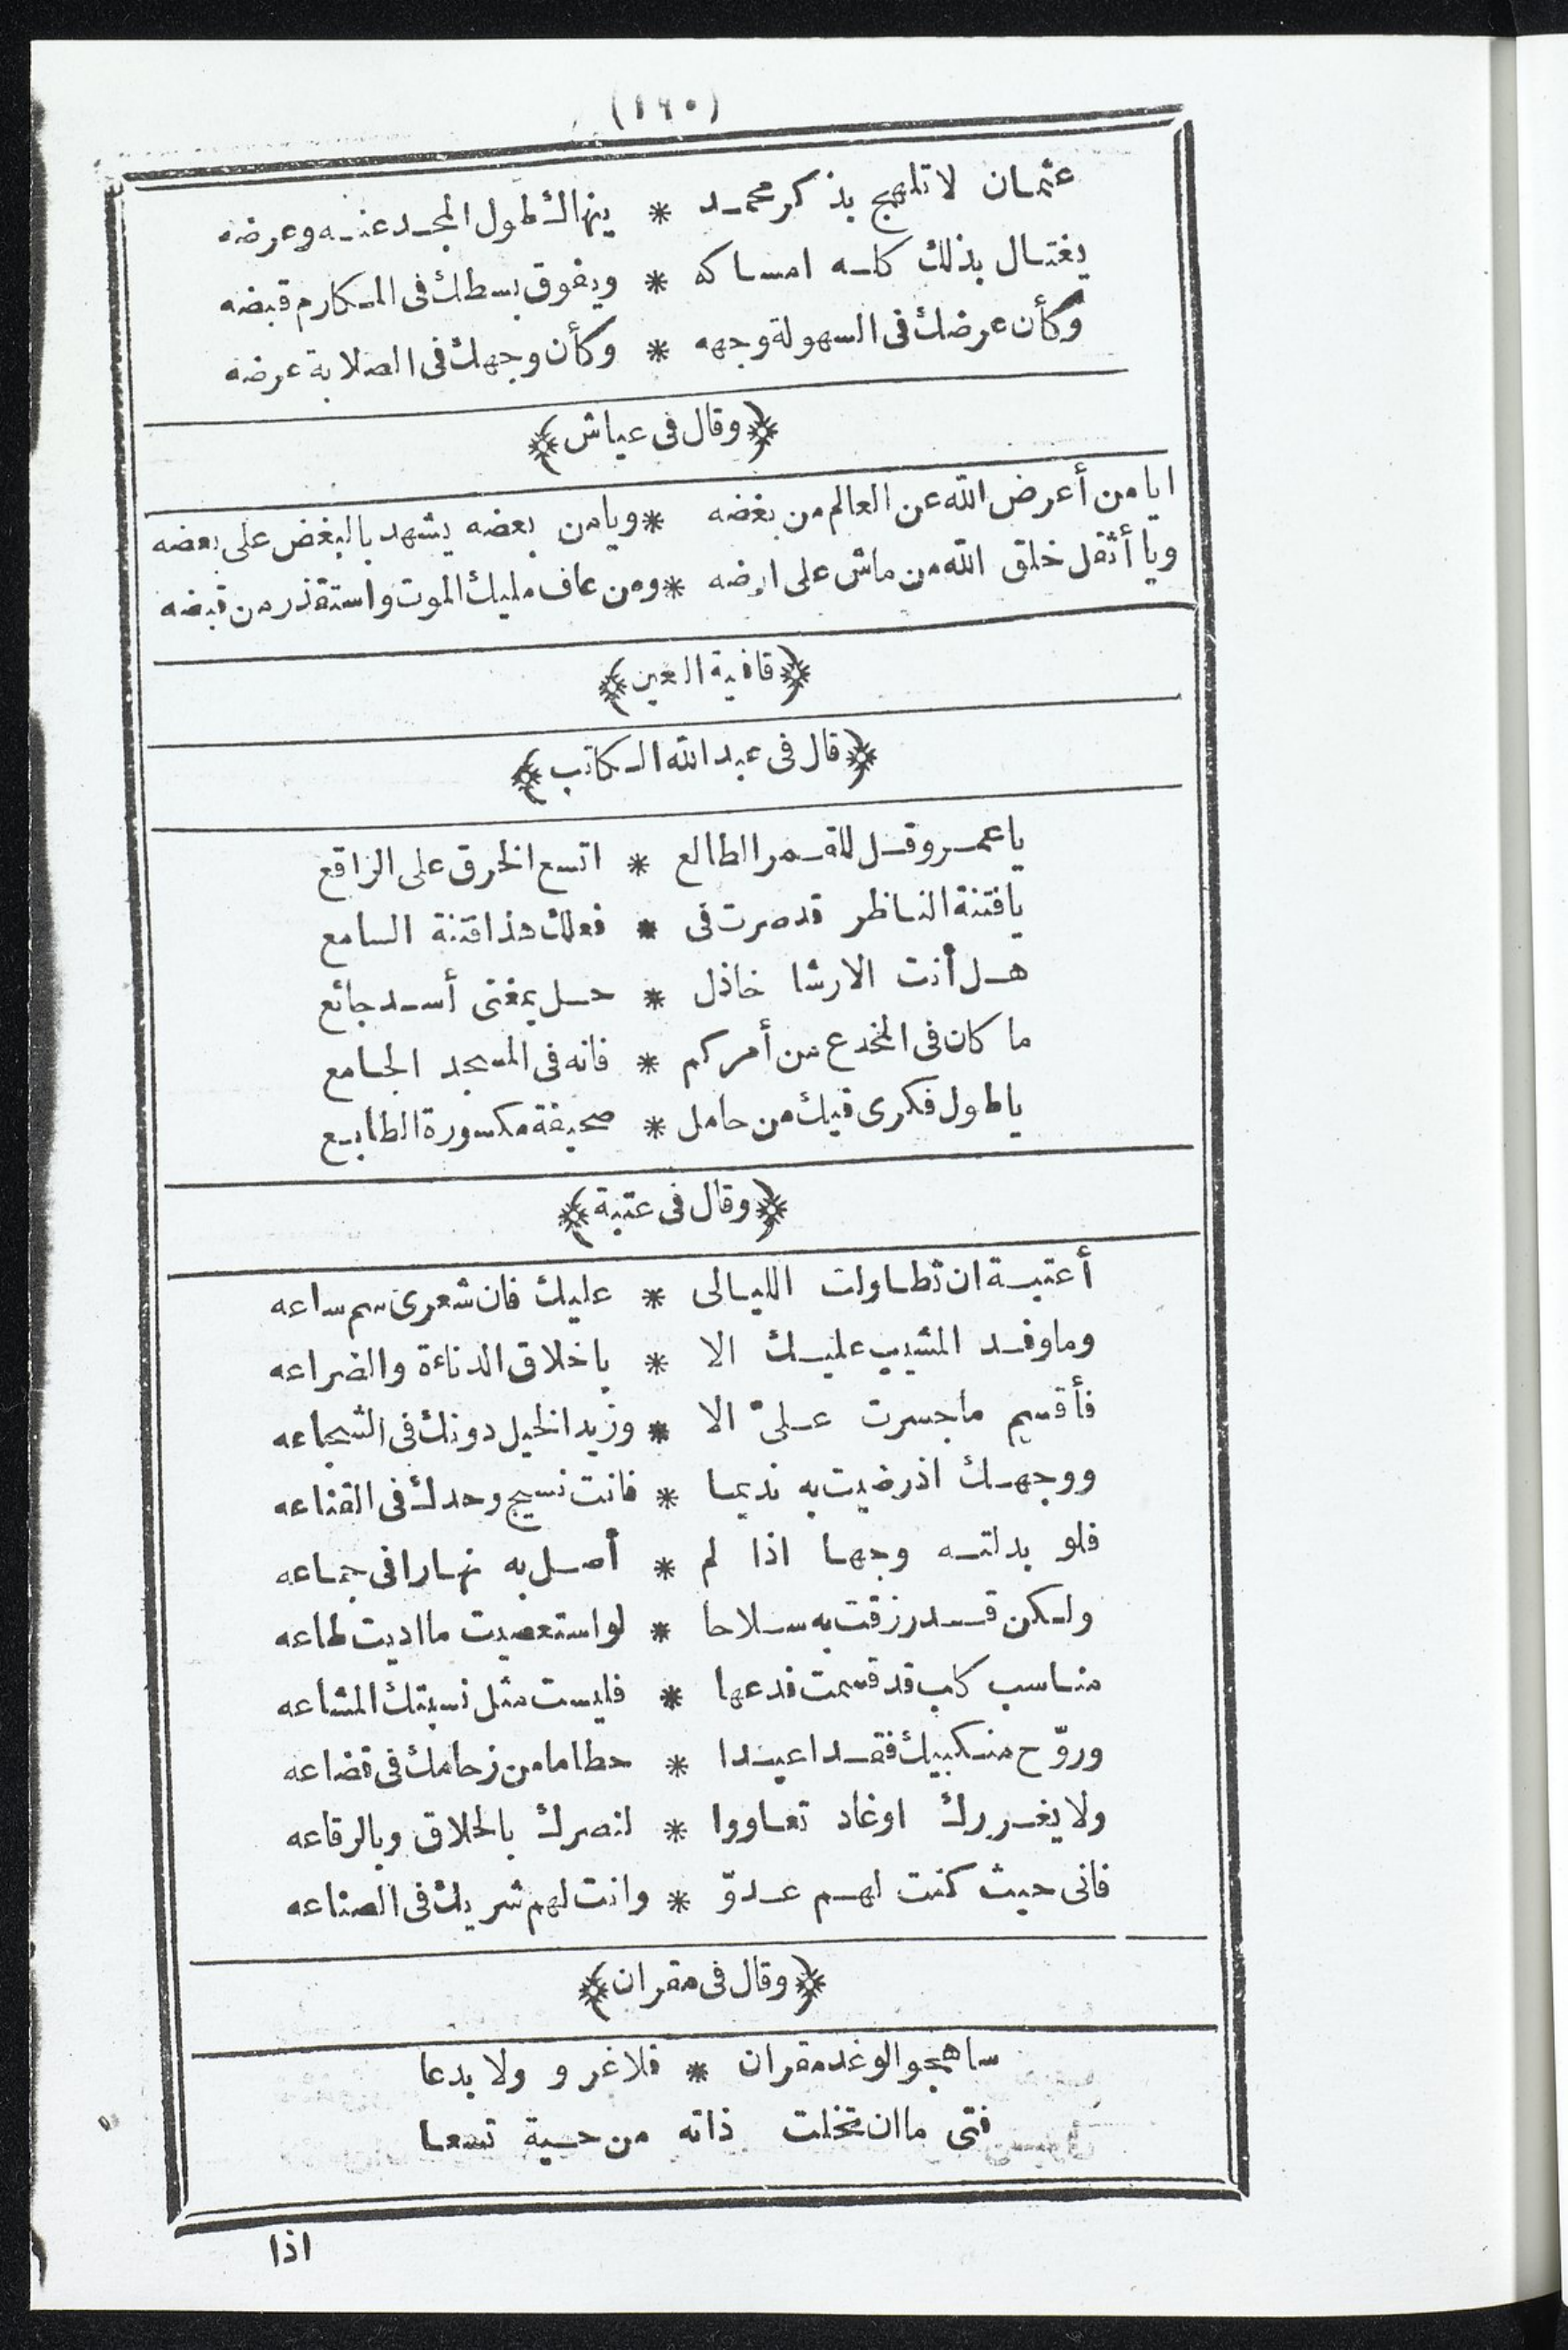 (١٦٠)
عثمان لا تلهج بذكر محمد * ينهاك طول المجد عنه وعرضه
يغتال بذلك كله امساكه * ويفوق بسطك فى المكارم قبضه
وكأن عرضك فى السهولة وجهه * وكأن وجهك فى الصلابة عرضه
﴿وقال فى عياش﴾
ايا من أعرض الله عن العالم من بغضه * ويامن بعضه يشهد بالبغض على بعضه
ويا أثقل خلق الله من ماش على ارضه * ومن عاف مليك الموت واستقذر من قبضه
﴿قافية العين﴾
﴿قال فى عبد الله الكاتب﴾
يا عمرو قل للقمر الطالع * اتسع الخرق على الراقع
يا فتنة الناظر قد صرت فى * فعلك هذا فتنة السامع
هل أنت الا رشا خاذل * حل بمغنى أسد جائع
ما كان فى المخدع من أمركم * فانه فى المسجد الجامع
يا طول فكرى فيك من حامل * صحيفة مكسورة الطابع
﴿وقال فى عتبة﴾
أعتبة ان تطاولت الليالى * عليك فان شعرى سم ساعه
وما وفد المشيب عليك الا * باخلاق الدناءة والضراعه
فأقسم ما جسرت علىّ الا * وزيد الخيل دونك فى الشجاعه
ووجهك اذ رضيت به نديما * فانت نسيج وحدك فى القناعه
فلو بدلته وجها اذا لم * أصل به نهارا فى جماعه
ولكن قد رزقت به سلاحا * لو استعصيت ما اديت طاعه
مناسب كلب قد قسمت فدعها * فليست مثل نسبتك المشاعه
وروّح منكبيك فقد اعيدا * حطاما من زحامك فى قضاعه
ولا يغررك اوغاد تعاووا * لنصرك بالحلاق وبالرقاعه
فانى حيث كنت لهم عدوّ * وانت لهم شريك فى الصناعه
﴿وقال فى مقران﴾
ساهجو الوغد مقران * فلا غرو ولا بدعا
فتى ما ان تخلت ذاته من حسية تسعا
اذا